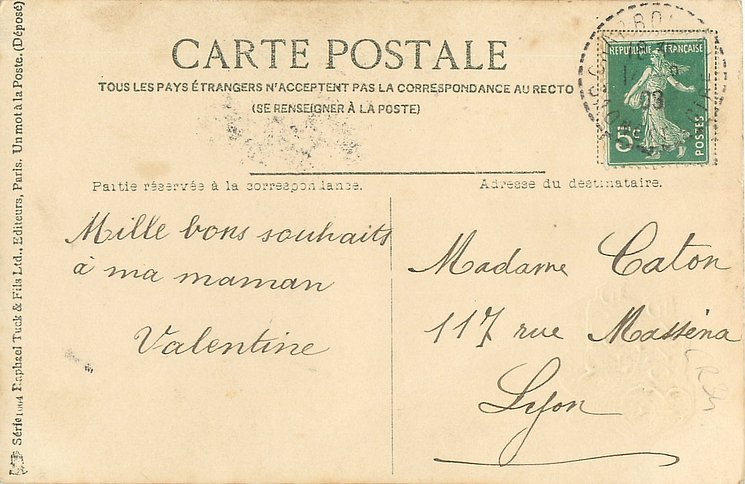 CARTE POSTALE
TOUS LES PAYS ÉTRANGERS N'ACCEPTENT PAS LA CORRESPONDANCE AU RECTO
(SE RENSEIGNER À LA POSTE)
Partie réservée à la correspondance.
Adresse du destinataire.
Mille bons souhaits
à ma maman
Valentine
Madame Caton
117 rue Masséna
Lyon
RÉPUBLIQUE FRANÇAISE
5c
POSTES
03
Série 1004 Raphael Tuck & Fils Ltd., Editeurs, Paris. Un mot à la Poste. (Déposé)